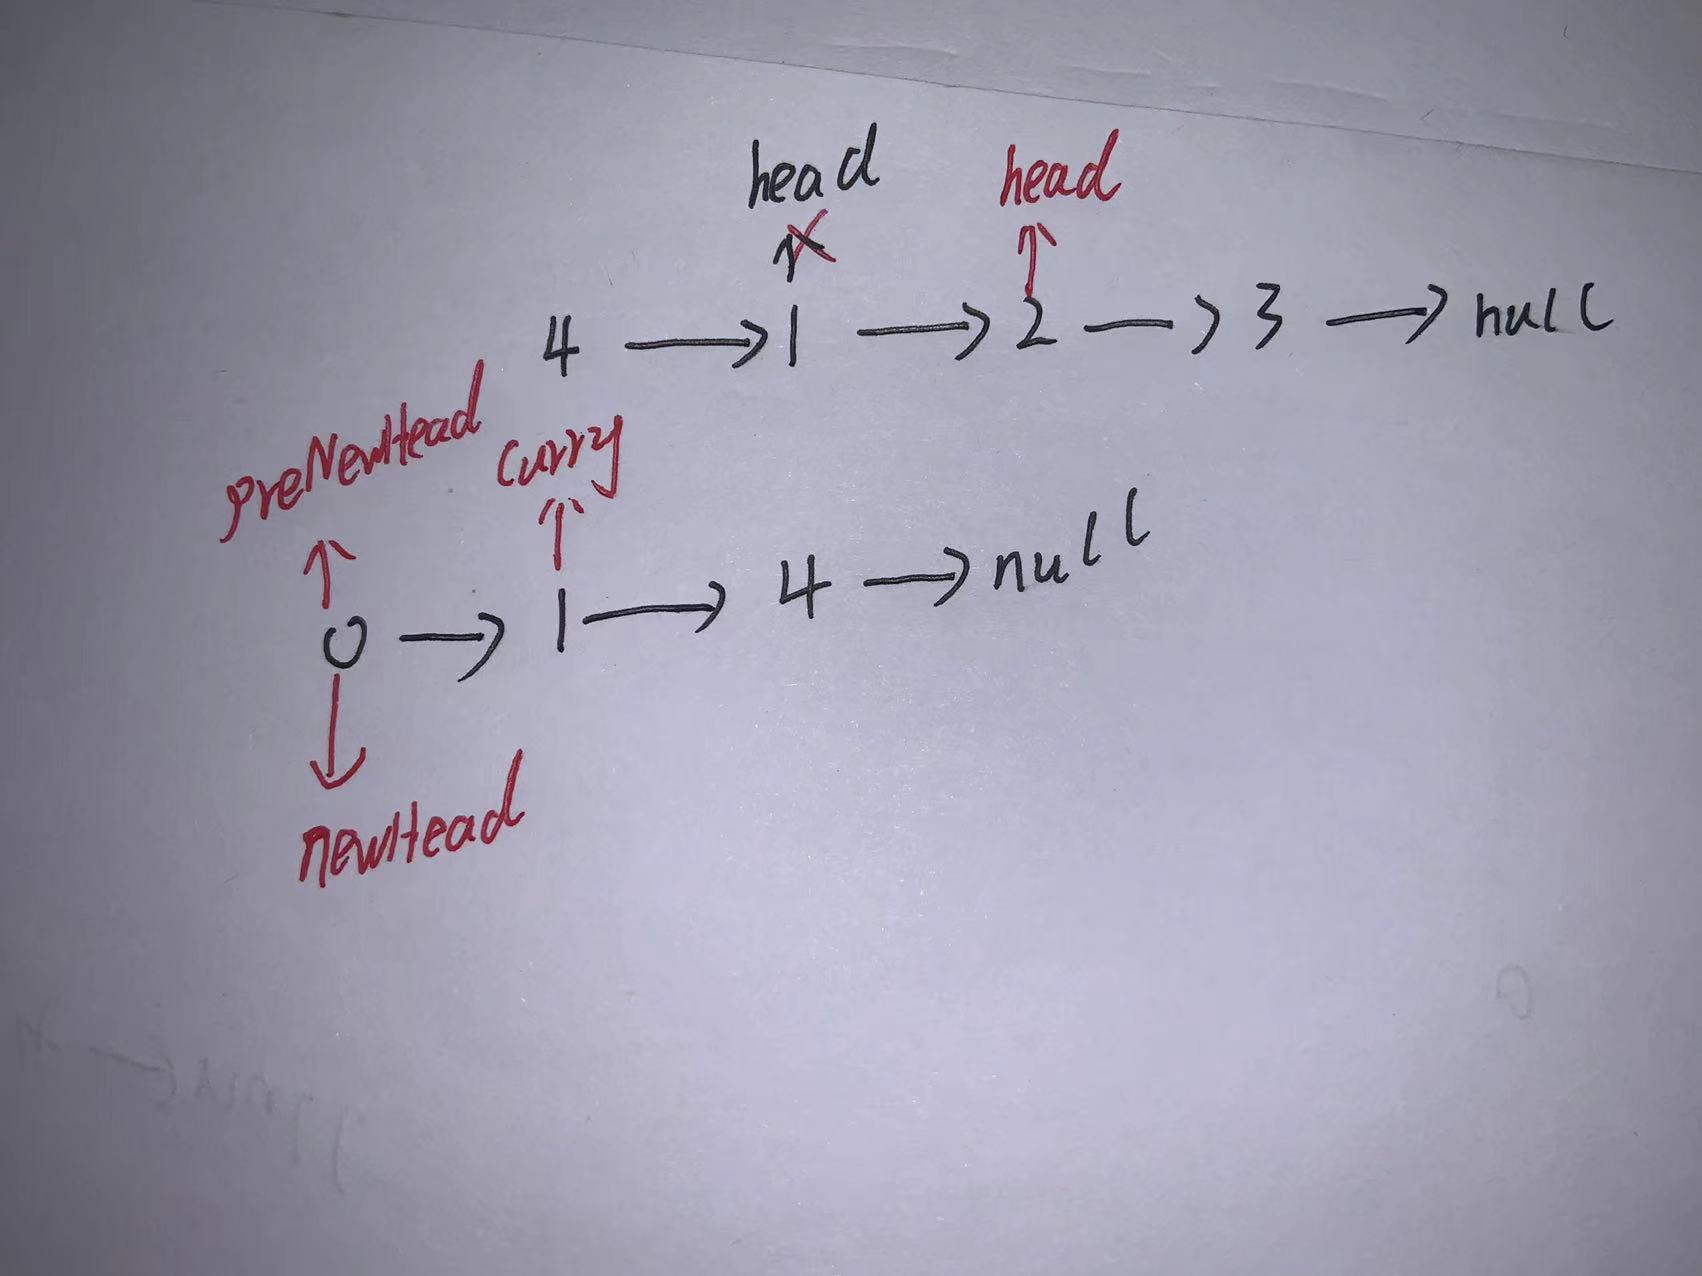 head head
4 → 1 → 2 → 3 → null
preNewHead curry
0 → 1 → 4 → null
newHead